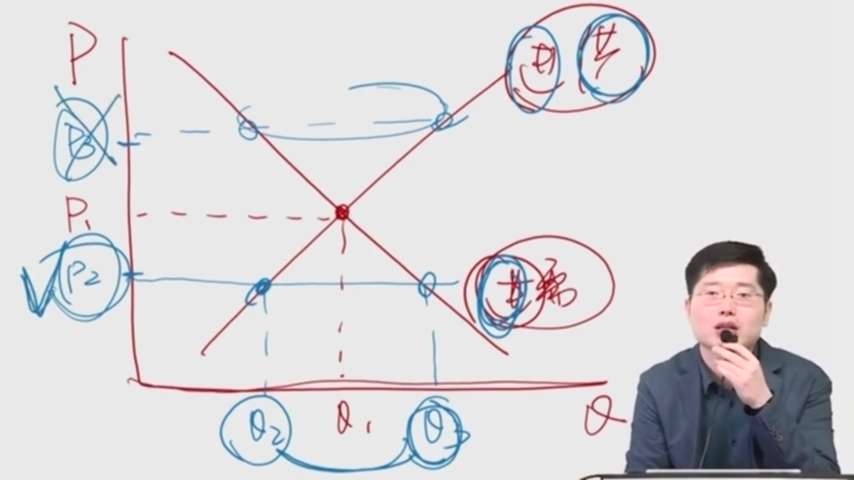 P
P3
P1
P2
需
Q2 Q1 Q3 Q